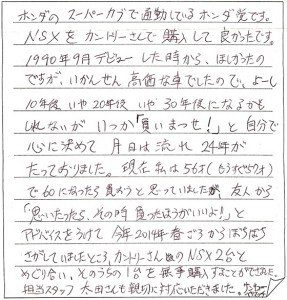 ホンダのスーパーカブで通勤しているホンダ党です。
NSXをカントリーさんで購入して良かったです。
1990年9月デビューした時から、ほしかったの
ですが、いかんせん高価な車でしたので、よーし
10年後いや20年後いや30年後になるかも
しれないがいつか「買いまっせ!」と自分で
心に決めて月日は流れ24年が
たっておりました。現在私は56才(もうすぐ57才)
で60になったら買おうと思っていましたが友人から
「思いたったら、その時買ったほうがいいよ!」と
アドバイスをうけて今年2014年春ごろからぼちぼち
さがしていましたところ、カントリーさんのNSX2台と
めぐり合い、そのうちの1台を無事購入することができました。
担当スタッフ太田さんも親切に対応いただきました。